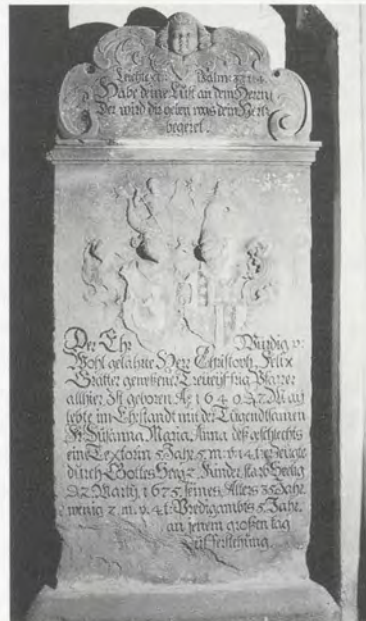 Psalm 37. v. 4.
Habe deine Lust an dem Herrn
Der wird dir geben was dein Hertz
begeret.
Der Ehr Würdig v:
Wohl gelährte Herr Christoph Felix
Gratter gewesener Treueyfrig Pfarrer
allhier Ist geboren Aō 1640 27 May
lebte im Ehstandt mit der Tugendsamen
Fr Susanna Maria Anna deß geschlechts
ein Textorin 5 Jahr 5 m v 14 t erzeugte
durch Gottes Seeg 2 Kinder starb Seelig
Martij 1675 seines Alters 35 Jahr
wenig 2 m. v. 4 t Predigambts 5 Jahr.
an jenem großen tag